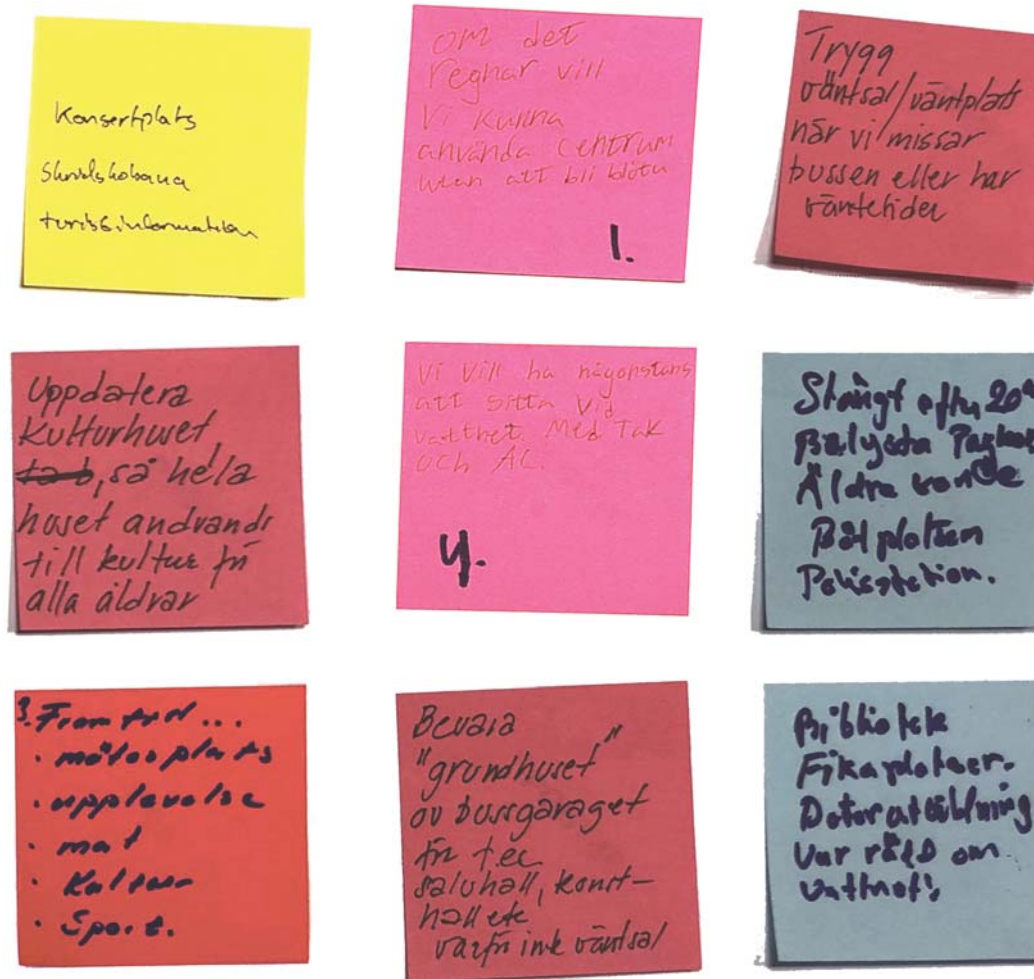 Konsertplats
Skridskobana
turistinformation
om det
regnar vill
Vi kunna
använda centrum
utan att bli blöta
1.
Trygg
väntsal/väntplats
när vi missar
bussen eller har
väntetider
Uppdatera
Kulturhuset
så hela
huset andvands
till kultur för
alla äldrar
Vi vill ha någonstans
att sitta vid
vattnet Med Tak
och AC.
4.
Stängt efter 20
Belysta
Äldre
Polisstation.
3. Framtid...
· mötesplats
· upplevelse
· mat
· Kultur
· Sport.
Bevara
"grundhuset"
av bussgaraget
för t.ex
saluhall, konst-
hall etc
varför inte väntsal
Bibliotek
Fikaplatser.
Datorutbildning
Var rädd om
vattnet!